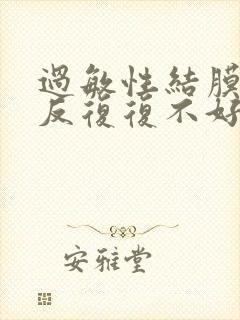 過敏性結膜
反復復不好
安雅堂